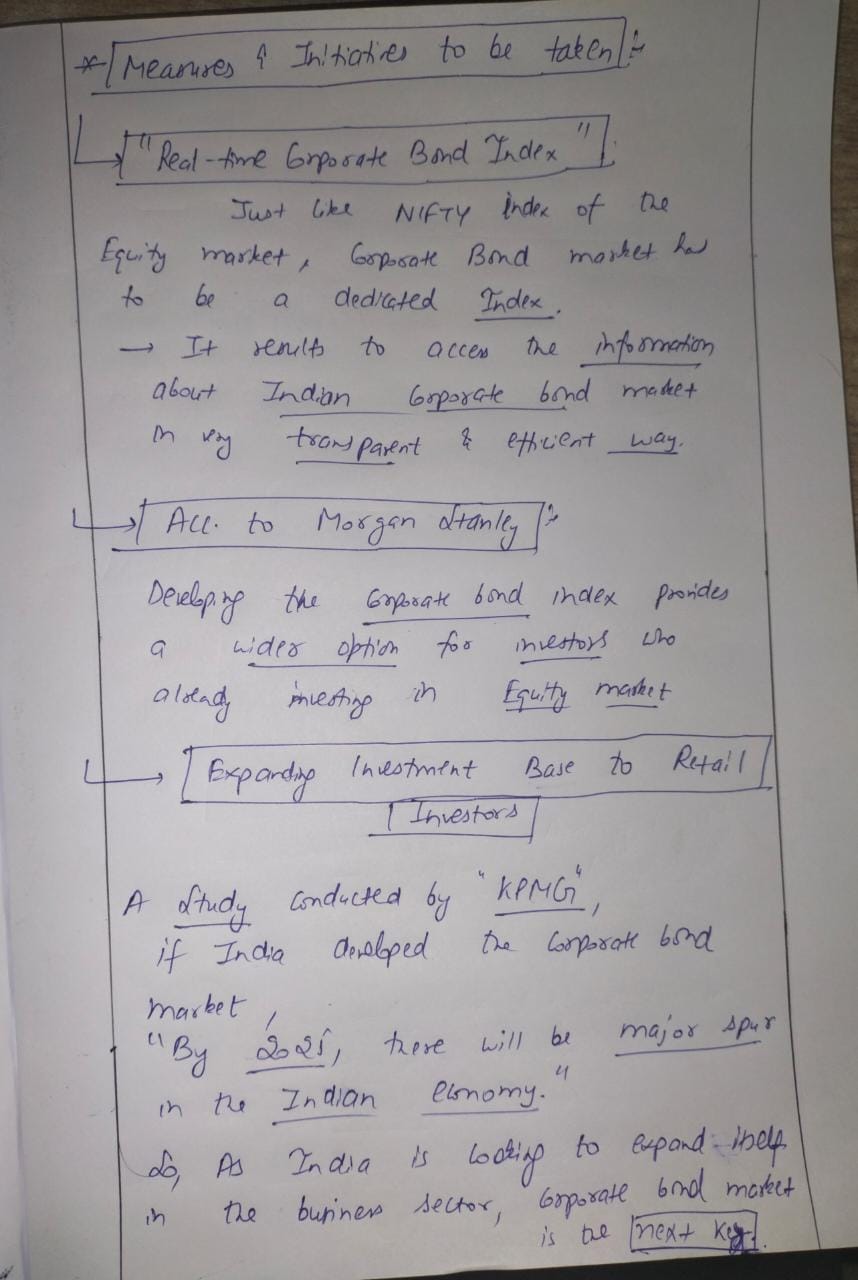 * Measures & Initiatives to be taken :-
"Real-time Corporate Bond Index"
Just like NIFTY index of the
Equity market, Corporate Bond market has
to be a dedicated Index.
→ It results to access the information
about Indian Corporate bond market
in very transparent & efficient way.
Acc. to Morgan Stanley :-
Developing the Corporate bond index provides
a wider option for investors who
already investing in Equity market
Expanding Investment Base to Retail
Investors
A Study conducted by "KPMG",
if India developed the Corporate bond
market,
"By 2025, there will be major spur
in the Indian economy."
So, As India is looking to expand itself
in the business sector, Corporate bond market
is the next key.